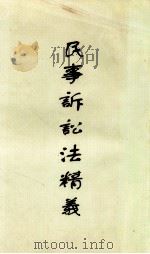 民事訴訟法精義
mtoou.info